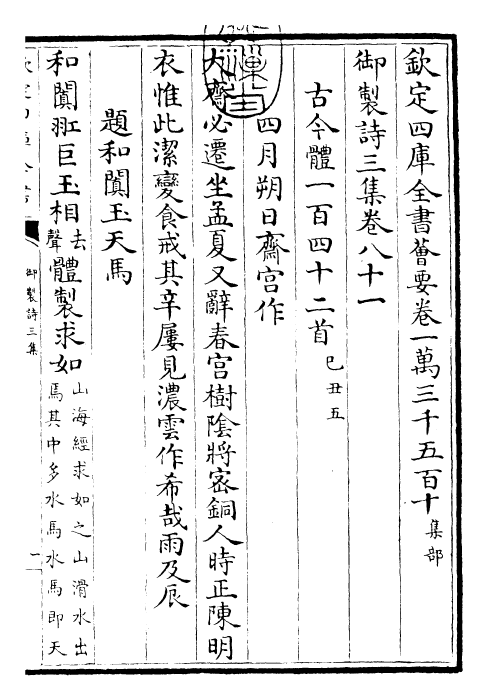 欽定四庫全書薈要卷一萬三千五百十集部
御製詩三集卷八十一
古今體一百四十二首己丑五
四月朔日齋宮作
大齋必遷坐孟夏又辭春宮樹陰將密銅人時正陳明
衣惟此潔變食戒其辛屢見濃雲作希哉雨及辰
題和闐玉天馬
和闐瑊巨玉相去聲體製求如山海經求如之山滑水出
馬其中多水馬水馬即天
御製詩三集
一